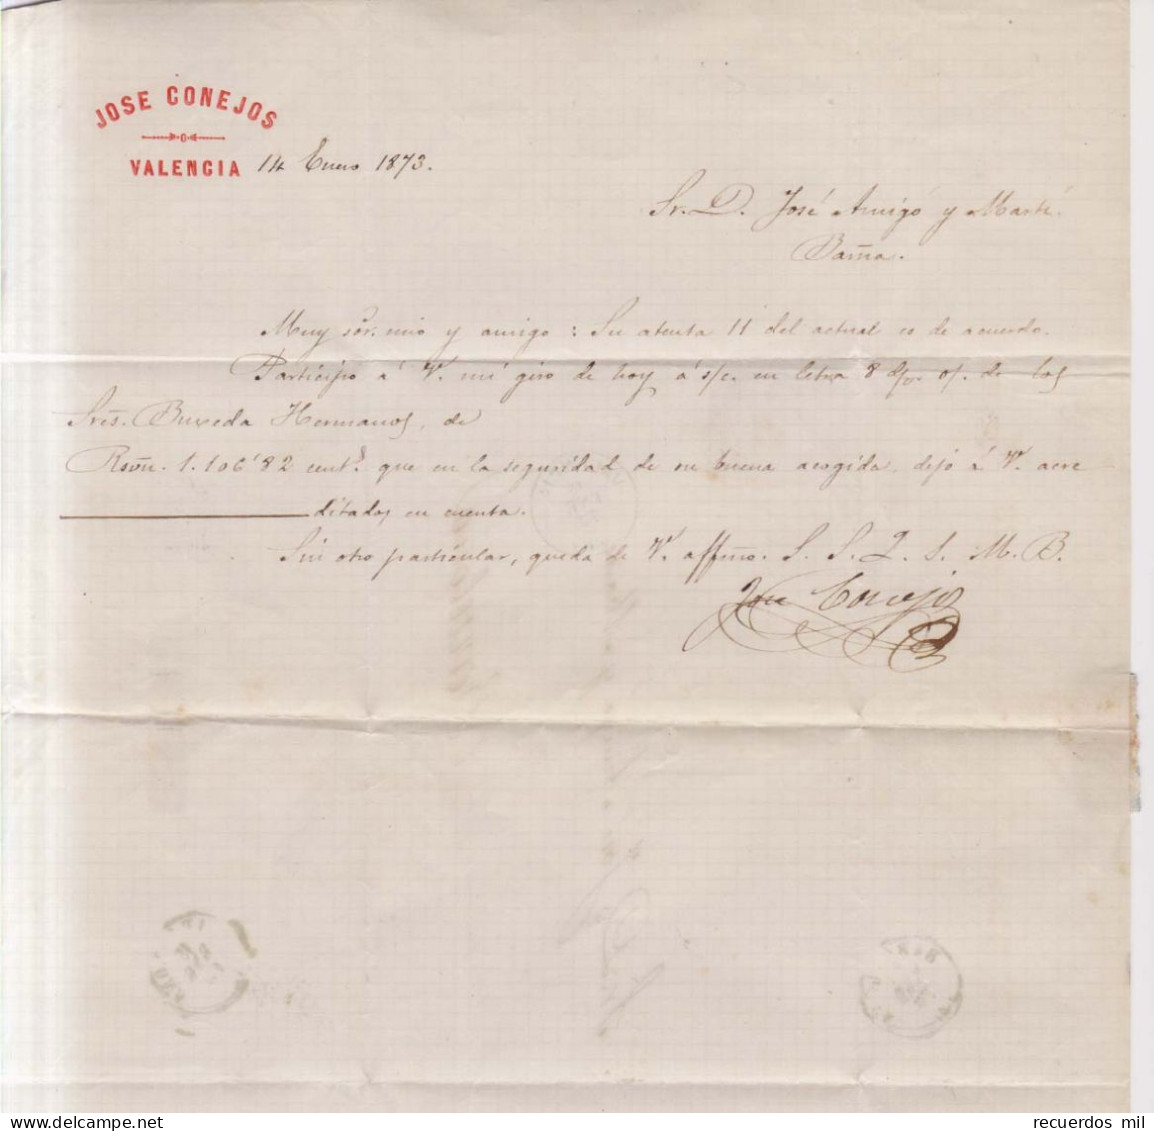 JOSE CONEJOS
VALENCIA 14 Enero 1873.
Sr. D. José Amigó y Martí.
Barña.
Muy Sor. mio y amigo: Su atenta 11 del actual es de acuerdo.
Participo á V. mi giro de hoy á s/c. en letra 8 d/v. o/. de los
Sres. Buxeda Hermanos, de
Rsvn. 1.106'82 cent.s que en la seguridad de su buena acogida, dejo á V. acre
ditados en cuenta.
Sin otro particular, queda de V. affmo. S. S. Q. S. M. B.
Jose Conejos
recuerdos mil